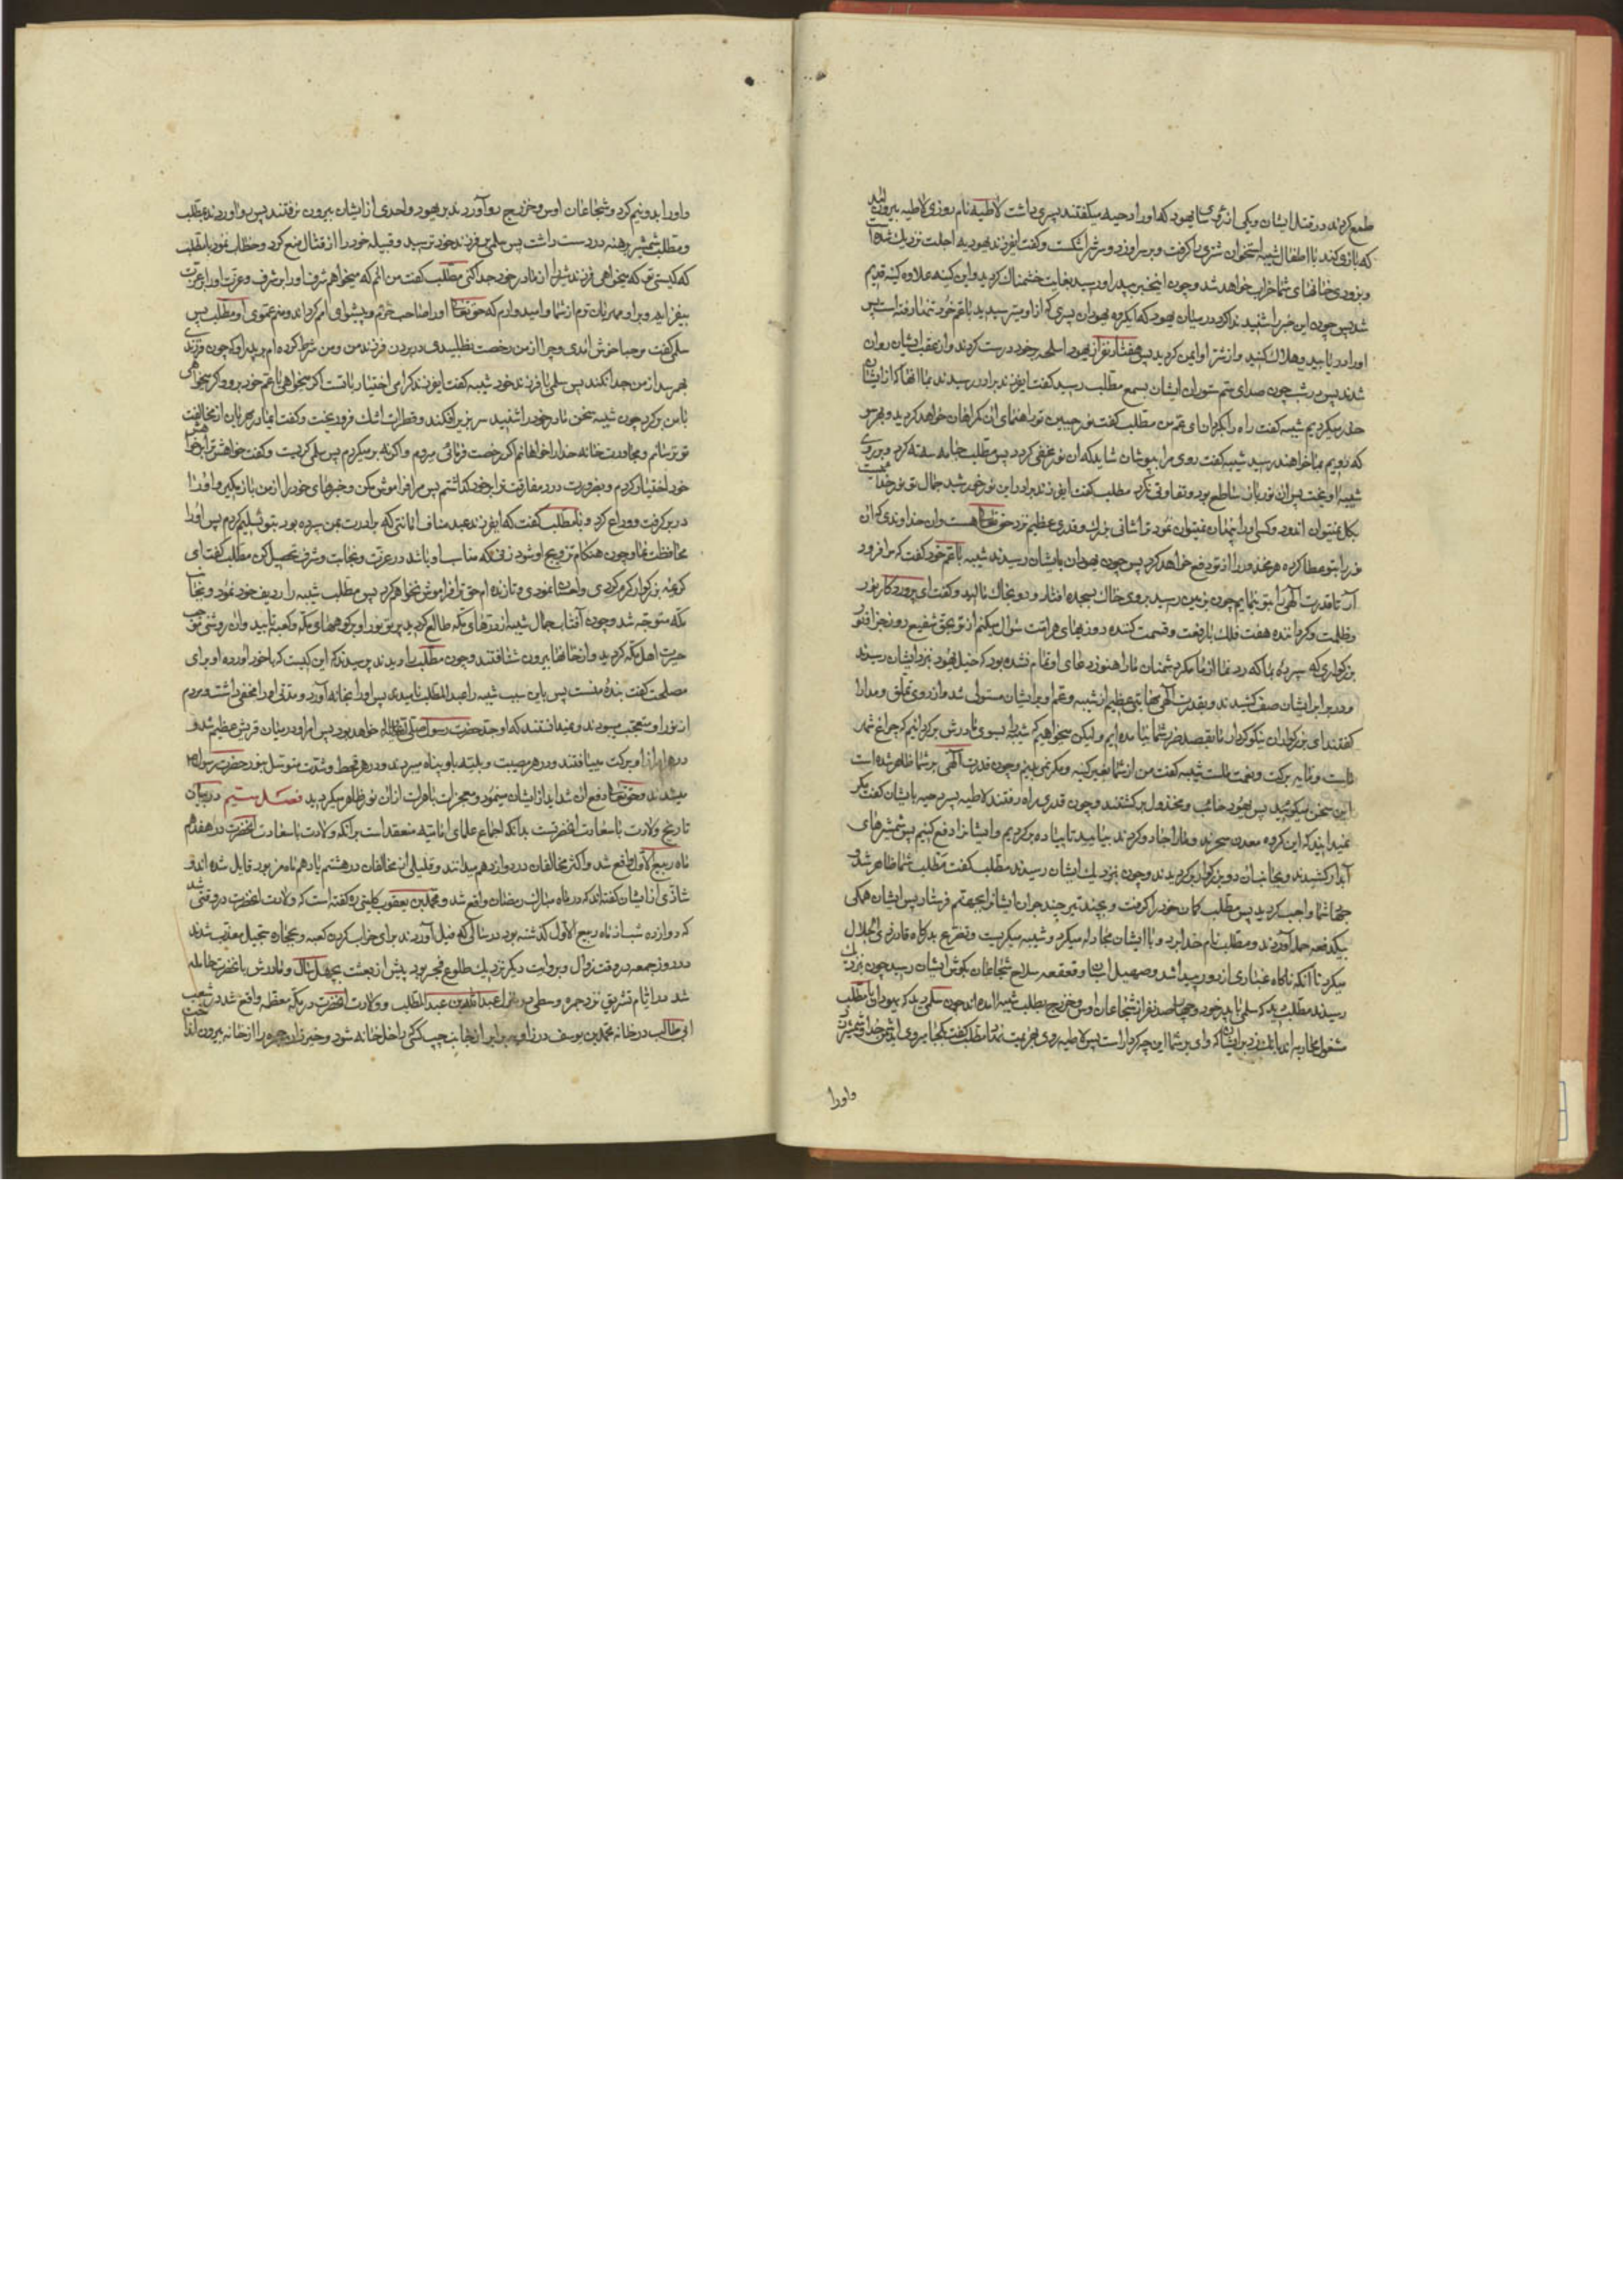 طمع کردند در قتل ایشان و یکی از رؤسای یهود که او را دحیه میگفتند پسری داشت لاطیه نام روزی لاطیه بیرون آمد
که بازی کند با اطفال شیبه استخوان شتری را گرفت و بر سر او زد و سرش را شکست و گفت ای فرزند یهودیه اجلت نزدیک شده است
و بزودی خانهای شما خراب خواهد شد و چون این خبر به پدر او رسید بغایت خشمناک گردید و این کینه علاوه کینه قدیم
شد پس چون این خبر را شنید ندا کرد در میان یهود که ای گروه یهودان پسری که از او میترسیدید با عم خود تنها رفته است پس
او را دریابید و هلاک کنید و از شر او ایمن گردید پس هفتاد نفر از یهود اسلحه بر خود درست کردند و از عقب ایشان روان
شدند پس در شب چون صدای سم ستوران ایشان بسمع مطلب رسید گفت ای فرزند برادر رسیدند بما آنها که از ایشان
حذر میکردیم شیبه گفت راه را بگردان ای عم من مطلب گفت نور جبین تو راهنمای آن گمراهان خواهد گردید و بهر سو
که رویم بما خواهند رسید شیبه گفت روی مرا بپوشان شاید که آن نور مخفی گردد پس مطلب جامه سه ته کرد و بر روی
شیبه آویخت پس آن نور باز ساطع بود و تفاوتی نکرد مطلب گفت ای فرزند برادر این نور خورشید جمال تو نور خداست
بگل نمیتوان اندود و کسی او را پنهان نمیتوان نمود ترا شانی بزرگ و قدری عظیم نزد حق تعالی هست و آن خداوندی که این
نور را بتو عطا کرده هر محذور را از تو دفع خواهد کرد پس چون یهودان بایشان رسیدند شیبه با عم خود گفت که مرا فرود
آر تا قدرت الهی را بتو بنمایم چون بزمین رسید بروی خاک بسجده افتاد و رو بخاک مالید و گفت ای پروردگار نور
و ظلمت و گرداننده هفت فلک با رفعت و قسمت کننده روزیهای هر امت سؤال میکنم از تو بحق شفیع روز جزا و نور
بزرگواری که سپرده بما که رد نما از ما مکر دشمنان ما را هنوز دعای او تمام نشده بود که خیل یهود نزد ایشان رسیدند
و در برابر ایشان صف کشیدند و بقدرت الهی مهابتی عظیم از شیبه و عم او بر ایشان مستولی شد و از روی تملق و مدارا
گفتند ای بزرگواران نیکوکردار ما بقصد ضرر شما نیامده‌ایم و لیکن میخواهیم که شیبه را بسوی مادرش برگردانیم که چراغ شهر
ماست و مایه برکت و نعمت ماست شیبه گفت من از شما بغیر کینه و مکر نمی‌بینم و چون قدرت الهی بر شما ظاهر شده است
این سخن میگوئید پس یهود خائب و مخذول برگشتند و چون قدری راه رفتند لاطیه پسر دحیه بایشان گفت مگر
نمیدانید که این گروه معدن سحرند و ما را جادو کردند بیائید تا پیاده برگردیم و ایشانرا دفع کنیم پس شمشیرهای
آبدار کشیدند و بجانب آن دو بزرگوار برگردیدند و چون نزدیک ایشان رسیدند مطلب گفت مطلب شما ظاهر شد و
جهاد شما واجب گردید پس مطلب کمان خود را گرفت و بچند تیر چند جوان ایشانرا بجهنم فرستاد پس ایشان همگی
بیکدفعه حمله آوردند و مطلب نام خدا برد و با ایشان مجادله میکرد و شیبه میگریست و تضرع بدرگاه قادر ذی الجلال
میکرد تا آنکه ناگاه غباری از دور پیدا شد و صهیل اسبان و قعقعه سلاح شجاعان بگوش ایشان رسید چون نزدیک
رسیدند مطلب دید که سلمی با پدر خود و چهارصد نفر از شجاعان اوس و خزرج بطلب شیبه آمده‌اند چون سلمی دید که یهودان با مطلب
مشغول محاربه‌اند بانک زد بر ایشان که وای بر شما این چه کردار است پس لاطیه روی بهزیمت نهاد مطلب گفت بکجا میروی ای دشمن خدا و شمشیر زد
و او را
و او را بدو نیم کرد و شجاعان اوس و خزرج رو آوردند بر یهود و احدی از ایشان بیرون نرفتند پس رو آوردند بمطلب
و مطلب شمشیر برهنه در دست داشت پس سلمی بر فرزند خود ترسید و قبیله خود را از قتال منع کرد و خطاب نمود با مطلب
که کیستی تو که میخواهی فرزند شیر را از مادر خود جدا کنی مطلب گفت من آنم که میخواهم شرف او را بر شرف و عزت او را بر عزت
بیفزاید و بر او مهربان ترم از شما و امیدوارم که حق تعالی او را صاحب حرم و پیشوای امم گرداند و منم عموی او مطلب پس
سلمی گفت مرحبا خوش آمدی و چرا از من رخصت نطلبیدی در بردن فرزند من و من شرط کرده‌ام بر پدر او که چون فرزندی
بهم رسد از من جدا نکند پس سلمی با فرزند خود شیبه گفت ای فرزند گرامی اختیار با تست اگر میخواهی با عم خود برو و اگر میخواهی
با من برگرد چون شیبه سخن مادر خود را شنید سر بزیر افکند و قطرات اشک فرو ریخت و گفت ای مادر مهربان از مخالفت
تو ترسانم و مجاورت خانه خدا را خواهانم اگر رخصت فرمائی میروم و اگر نه بر میگردم پس سلمی گریست و گفت خواهش ترا بر خواهش
خود اختیار کردم و بضرورت درد مفارقت ترا بر خود گذاشتم پس مرا فراموش مکن و خبرهای خود را از من باز مگیر و او را
در بر گرفت و وداع کرد و با مطلب گفت که ای فرزند عبد مناف امانتی که برادرت بمن سپرده بود بتو تسلیم کردم پس او را
محافظت نما و چون هنگام تزویج او شود زنی که مناسب او باشد در عزت و نجابت و شرف تحصیل کن مطلب گفت ای
کریمه بزرگوار کرم کردی و احسان نمودی و تا زنده‌ام حق ترا فراموش نخواهم کرد پس مطلب شیبه را ردیف خود نمود و بجانب
مکه متوجه شد و چون آفتاب جمال شیبه از درهای مکه طالع گردید پرتو نور او بر کوههای مکه و کعبه تابید و از آن روشنی موجب
حیرت اهل مکه گردید و از خانها بیرون شتافتند و چون مطلب را دیدند پرسیدند که این کیست که با خود آورده او برای
مصلحت گفت بنده منست پس باین سبب شیبه را عبد المطلب نامیدند پس او را بخانه آورد و مدتی امر او را مخفی داشت و مردم
از نور او متعجب میبودند و نمیدانستند که او جد حضرت رسول صلی الله علیه و آله خواهد بود پس امر او در میان قریش عظیم شد و
در هر امر از او برکت مییافتند و در هر مصیبت و بلیه باو پناه میبردند و در هر قحط و شدت متوسل بنور حضرت رسول ص
میشدند و حق تعالی دفع آن شداید از ایشان مینمود و معجزات باهرات از آن نور ظاهر میگردید فصل سیم در بیان
تاریخ ولادت با سعادت آنحضرتست بدانکه اجماع علمای امامیه منعقد است بر آنکه ولادت با سعادت آنحضرت در هفدهم
ماه ربیع الاول واقع شد و اکثر مخالفان در دوازدهم میدانند و قلیلی از مخالفان در هشتم یا دهم ماه مزبور قایل شده‌اند و
شاذی از ایشان گفته‌اند که در ماه مبارک رمضان واقع شد و محمد بن یعقوب کلینی ره گفته است که ولادت آنحضرت در وقتی شد
که دوازده شب از ماه ربیع الاول گذشته بود در سالی که فیل آوردند برای خراب کردن کعبه و بحجاره سجیل معذب شدند
در روز جمعه در وقت زوال و بروایت دیگر نزدیک طلوع فجر بود پیش از بعثت بچهل سال و مادرش بآنحضرت حامله
شد در ایام تشریق نزد جمره وسطی در خانه عبد الله بن عبد المطلب و ولادت آنحضرت در مکه معظمه واقع شد در شعب
ابی طالب در خانه محمد بن یوسف در زاویه برابر از جانب چپ کسی که داخل خانه شود و خیزران آن حجره را از خانه بیرون انداخت